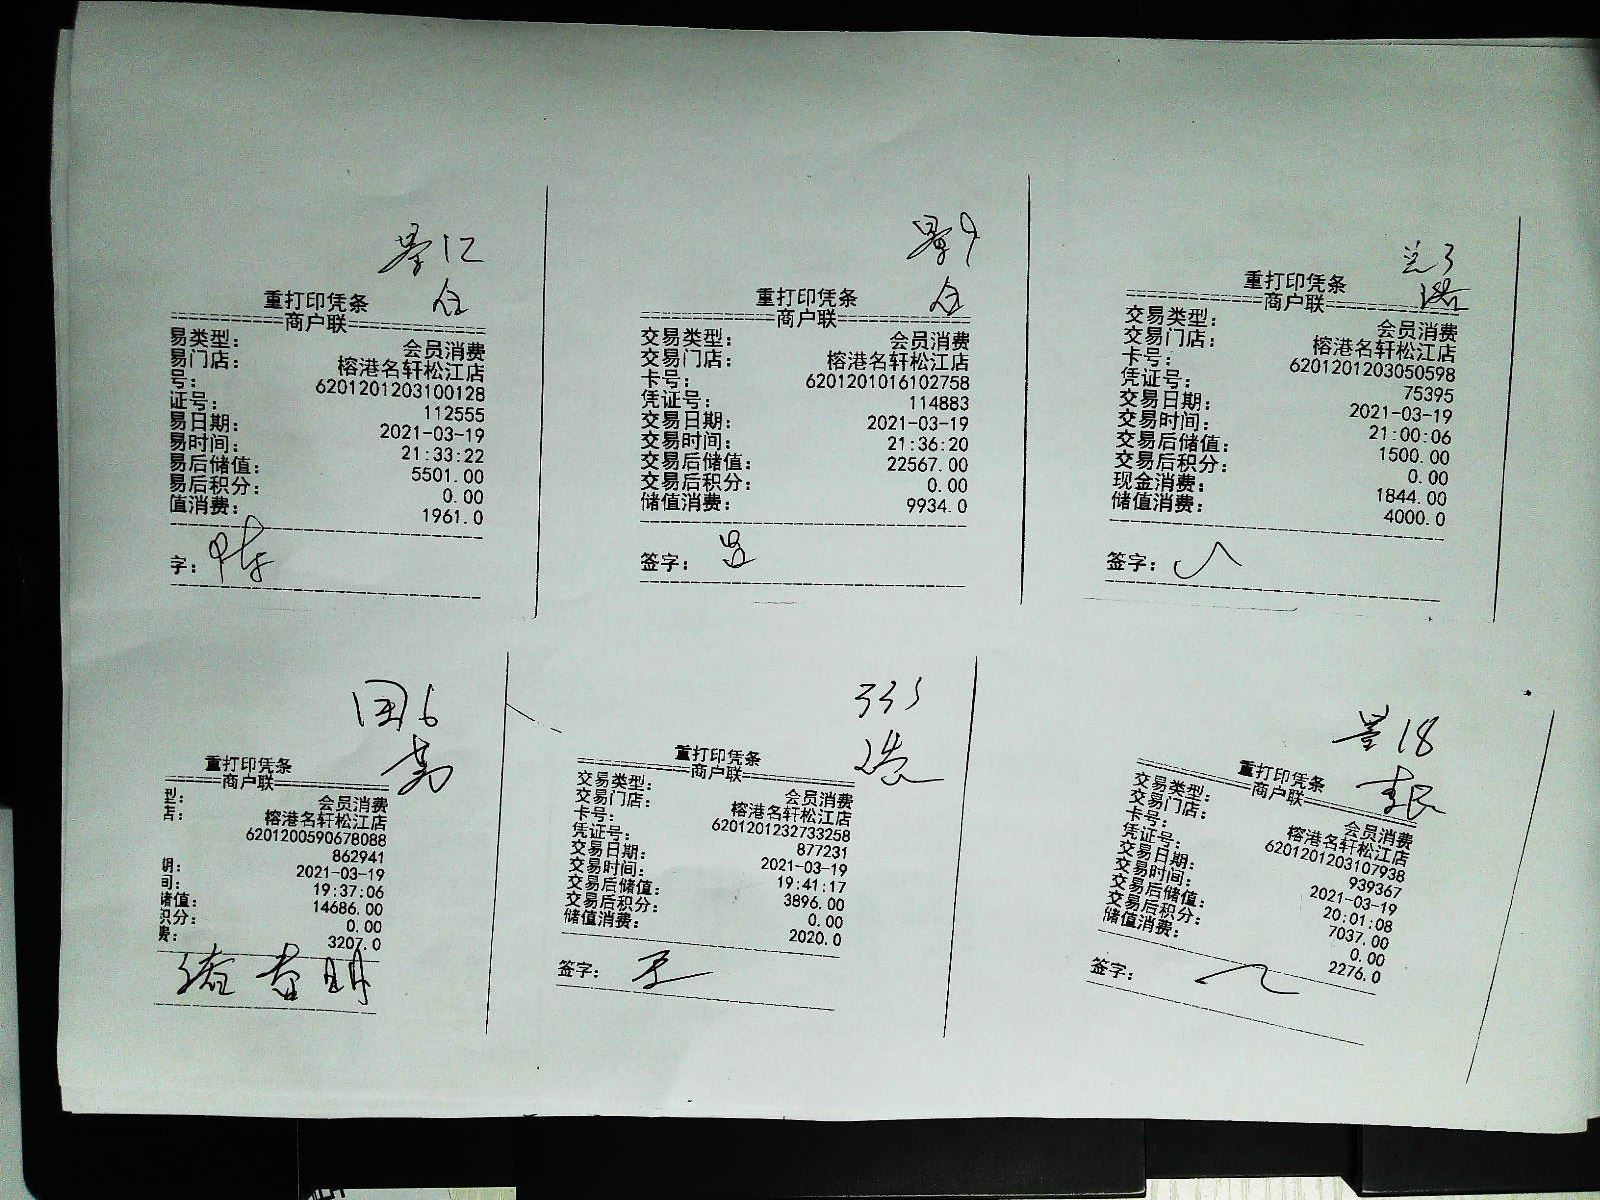 12
重打印凭条
商户联
易类型: 会员消费
易门店: 榕港名轩松江店
号: 6201201203100128
证号: 112555
易日期: 2021-03-19
易时间: 21:33:22
易后储值: 5501.00
易后积分: 0.00
值消费: 1961.0
字:
9
重打印凭条
商户联
交易类型: 会员消费
交易门店: 榕港名轩松江店
卡号: 6201201016102758
凭证号: 114883
交易日期: 2021-03-19
交易时间: 21:36:20
交易后储值: 22567.00
交易后积分: 0.00
储值消费: 9934.0
签字:
3
重打印凭条
商户联
交易类型: 会员消费
交易门店: 榕港名轩松江店
卡号: 6201201203050598
凭证号: 75395
交易日期: 2021-03-19
交易时间: 21:00:06
交易后储值: 1500.00
交易后积分: 0.00
现金消费: 1844.00
储值消费: 4000.0
签字:
国6
重打印凭条
商户联
型: 会员消费
店: 榕港名轩松江店
6201200590678088
862941
期: 2021-03-19
间: 19:37:06
储值: 14686.00
积分: 0.00
费: 3207.0
335
重打印凭条
商户联
交易类型: 会员消费
交易门店: 榕港名轩松江店
卡号: 6201201232733258
凭证号: 877231
交易日期: 2021-03-19
交易时间: 19:41:17
交易后储值: 3896.00
交易后积分: 0.00
储值消费: 2020.0
签字: 王
18
重打印凭条
商户联
交易类型: 会员消费
交易门店: 榕港名轩松江店
卡号: 6201201203107938
凭证号: 939367
交易日期: 2021-03-19
交易时间: 20:01:08
交易后储值: 7037.00
交易后积分: 0.00
储值消费: 2276.0
签字: